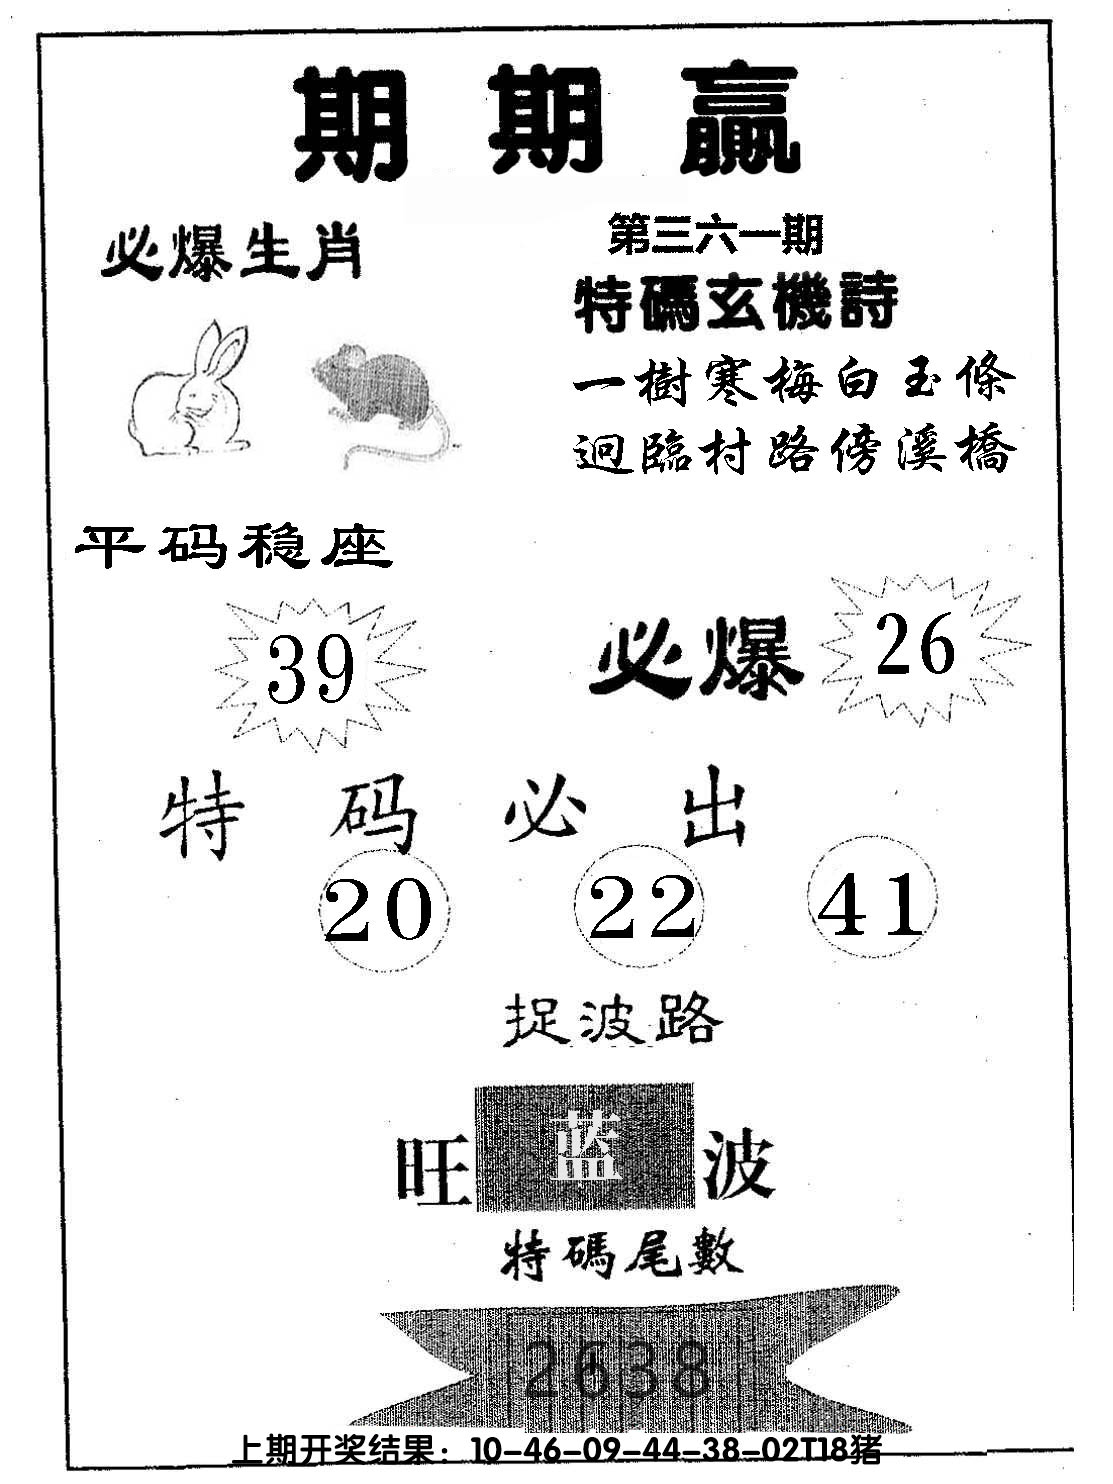 期期赢
必爆生肖
第三六一期
特碼玄機詩
一樹寒梅白玉條
迥臨村路傍溪橋
平码稳座
39
必爆 26
特码必出
20 22 41
捉波路
旺 蓝 波
特碼尾數
2638
上期开奖结果：10-46-09-44-38-02T18猪